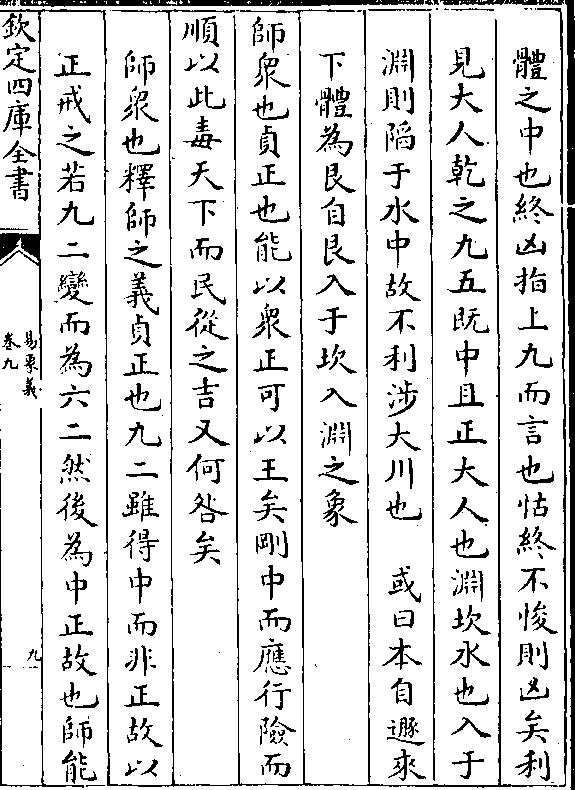 體之中也終凶指上九而言也怙終不悛則凶矣利
見大人乾之九五既中且正大人也淵坎水也入于
淵則陷于水中故不利渉大川也　或曰本自遯來
下體為艮自艮入于坎入淵之象
師衆也貞正也能以衆正可以王矣剛中而應行險而
順以此毒天下而民從之吉又何咎矣
師衆也釋師之義貞正也九二雖得中而非正故以
正戒之若九二變而為六二然後為中正故也師能
欽定四庫全書
易象義
卷九
九